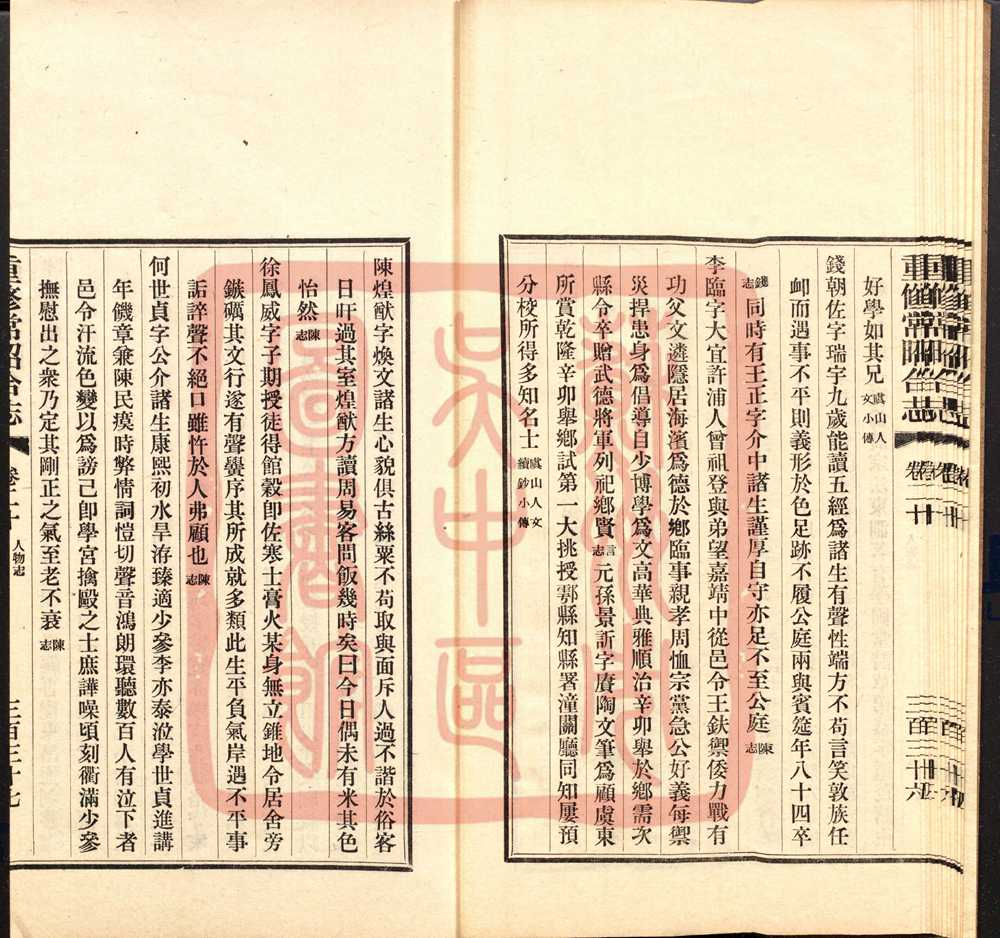 好學如其兄虞山人文小傳
錢朝佐字瑞字九歲能讀五經爲諸生有聲性端方不苟言笑敦族任
卹而遇事不平則義形於色足跡不履公庭兩與賓筵年八十四卒
錢志同時有王正字介中諸生謹厚自守亦足不至公庭陳志
李臨字大宜許浦人曾祖登與弟望嘉靖中從邑令王鈇禦倭力戰有
功父文遴隱居海濱爲德於鄉臨事親孝周恤宗黨急公好義每禦
災捍患身爲倡導自少博學爲文高華典雅順治辛卯舉於鄉需次
縣令卒贈武德將軍列祀鄉賢言志元孫景訢字賡陶文筆爲顧虞東
所賞乾隆辛卯舉鄉試第一大挑授鄠縣知縣署潼關廳同知屢預
分校所得多知名士虞山人文續鈔小傳
陳煌猷字煥文諸生心貌俱古絲粟不苟取與面斥人過不諧於俗客
日旰過其室煌猷方讀周易客問飯幾時矣曰今日偶未有米其色
怡然陳志
徐鳳威字子期授徒得館穀卽佐寒士膏火某身無立錐地令居舍旁
鏃礪其文行遂有聲黌序其所成就多類此生平負氣岸遇不平事
詬誶聲不絕口雖忤於人弗顧也陳志
何世貞字公介諸生康熙初水旱洊臻適少參李亦泰涖學世貞進講
年饑章兼陳民瘼時弊情詞愷切聲音鴻朗環聽數百人有泣下者
邑令汗流色變以爲謗己卽學宮擒毆之士庶譁噪頃刻衢滿少參
撫慰出之衆乃定其剛正之氣至老不衰陳志
重修常昭合志
人物志
三百三十七